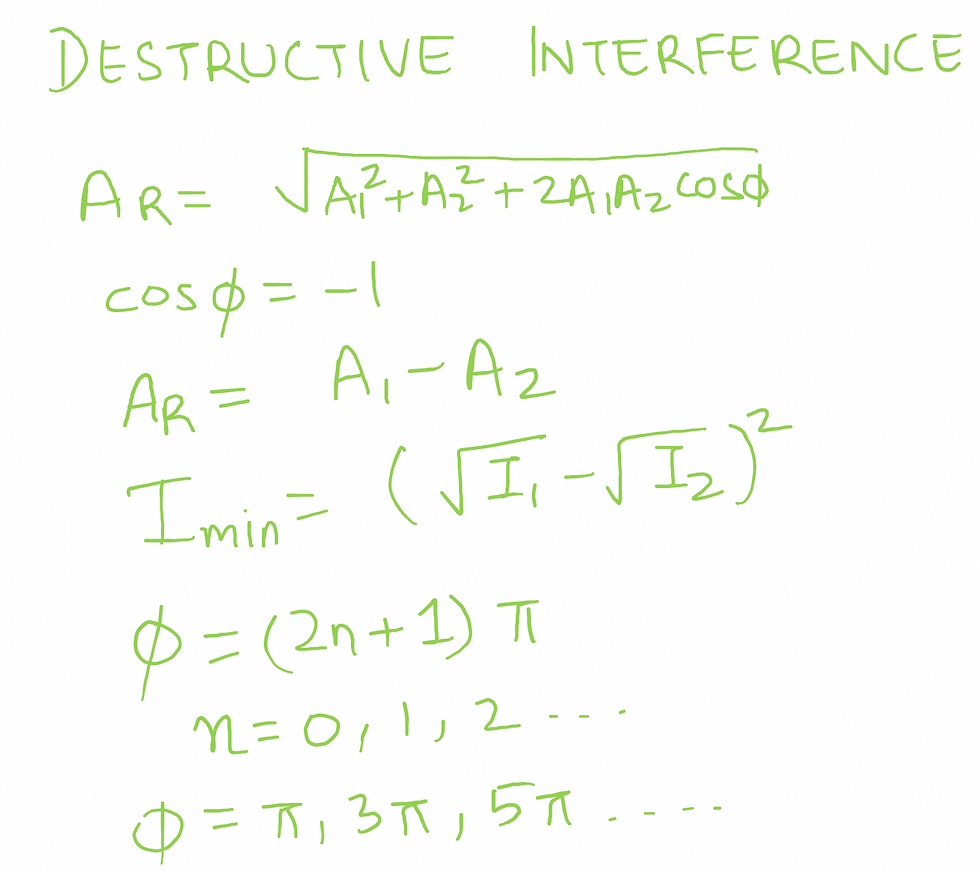 DESTRUCTIVE INTERFERENCE
A_R = √(A₁² + A₂² + 2A₁A₂ cosϕ)
cosϕ = -1
A_R = A₁ - A₂
I_min = (√I₁ - √I₂)²
ϕ = (2n+1) π
n = 0, 1, 2 ...
ϕ = π, 3π, 5π ....